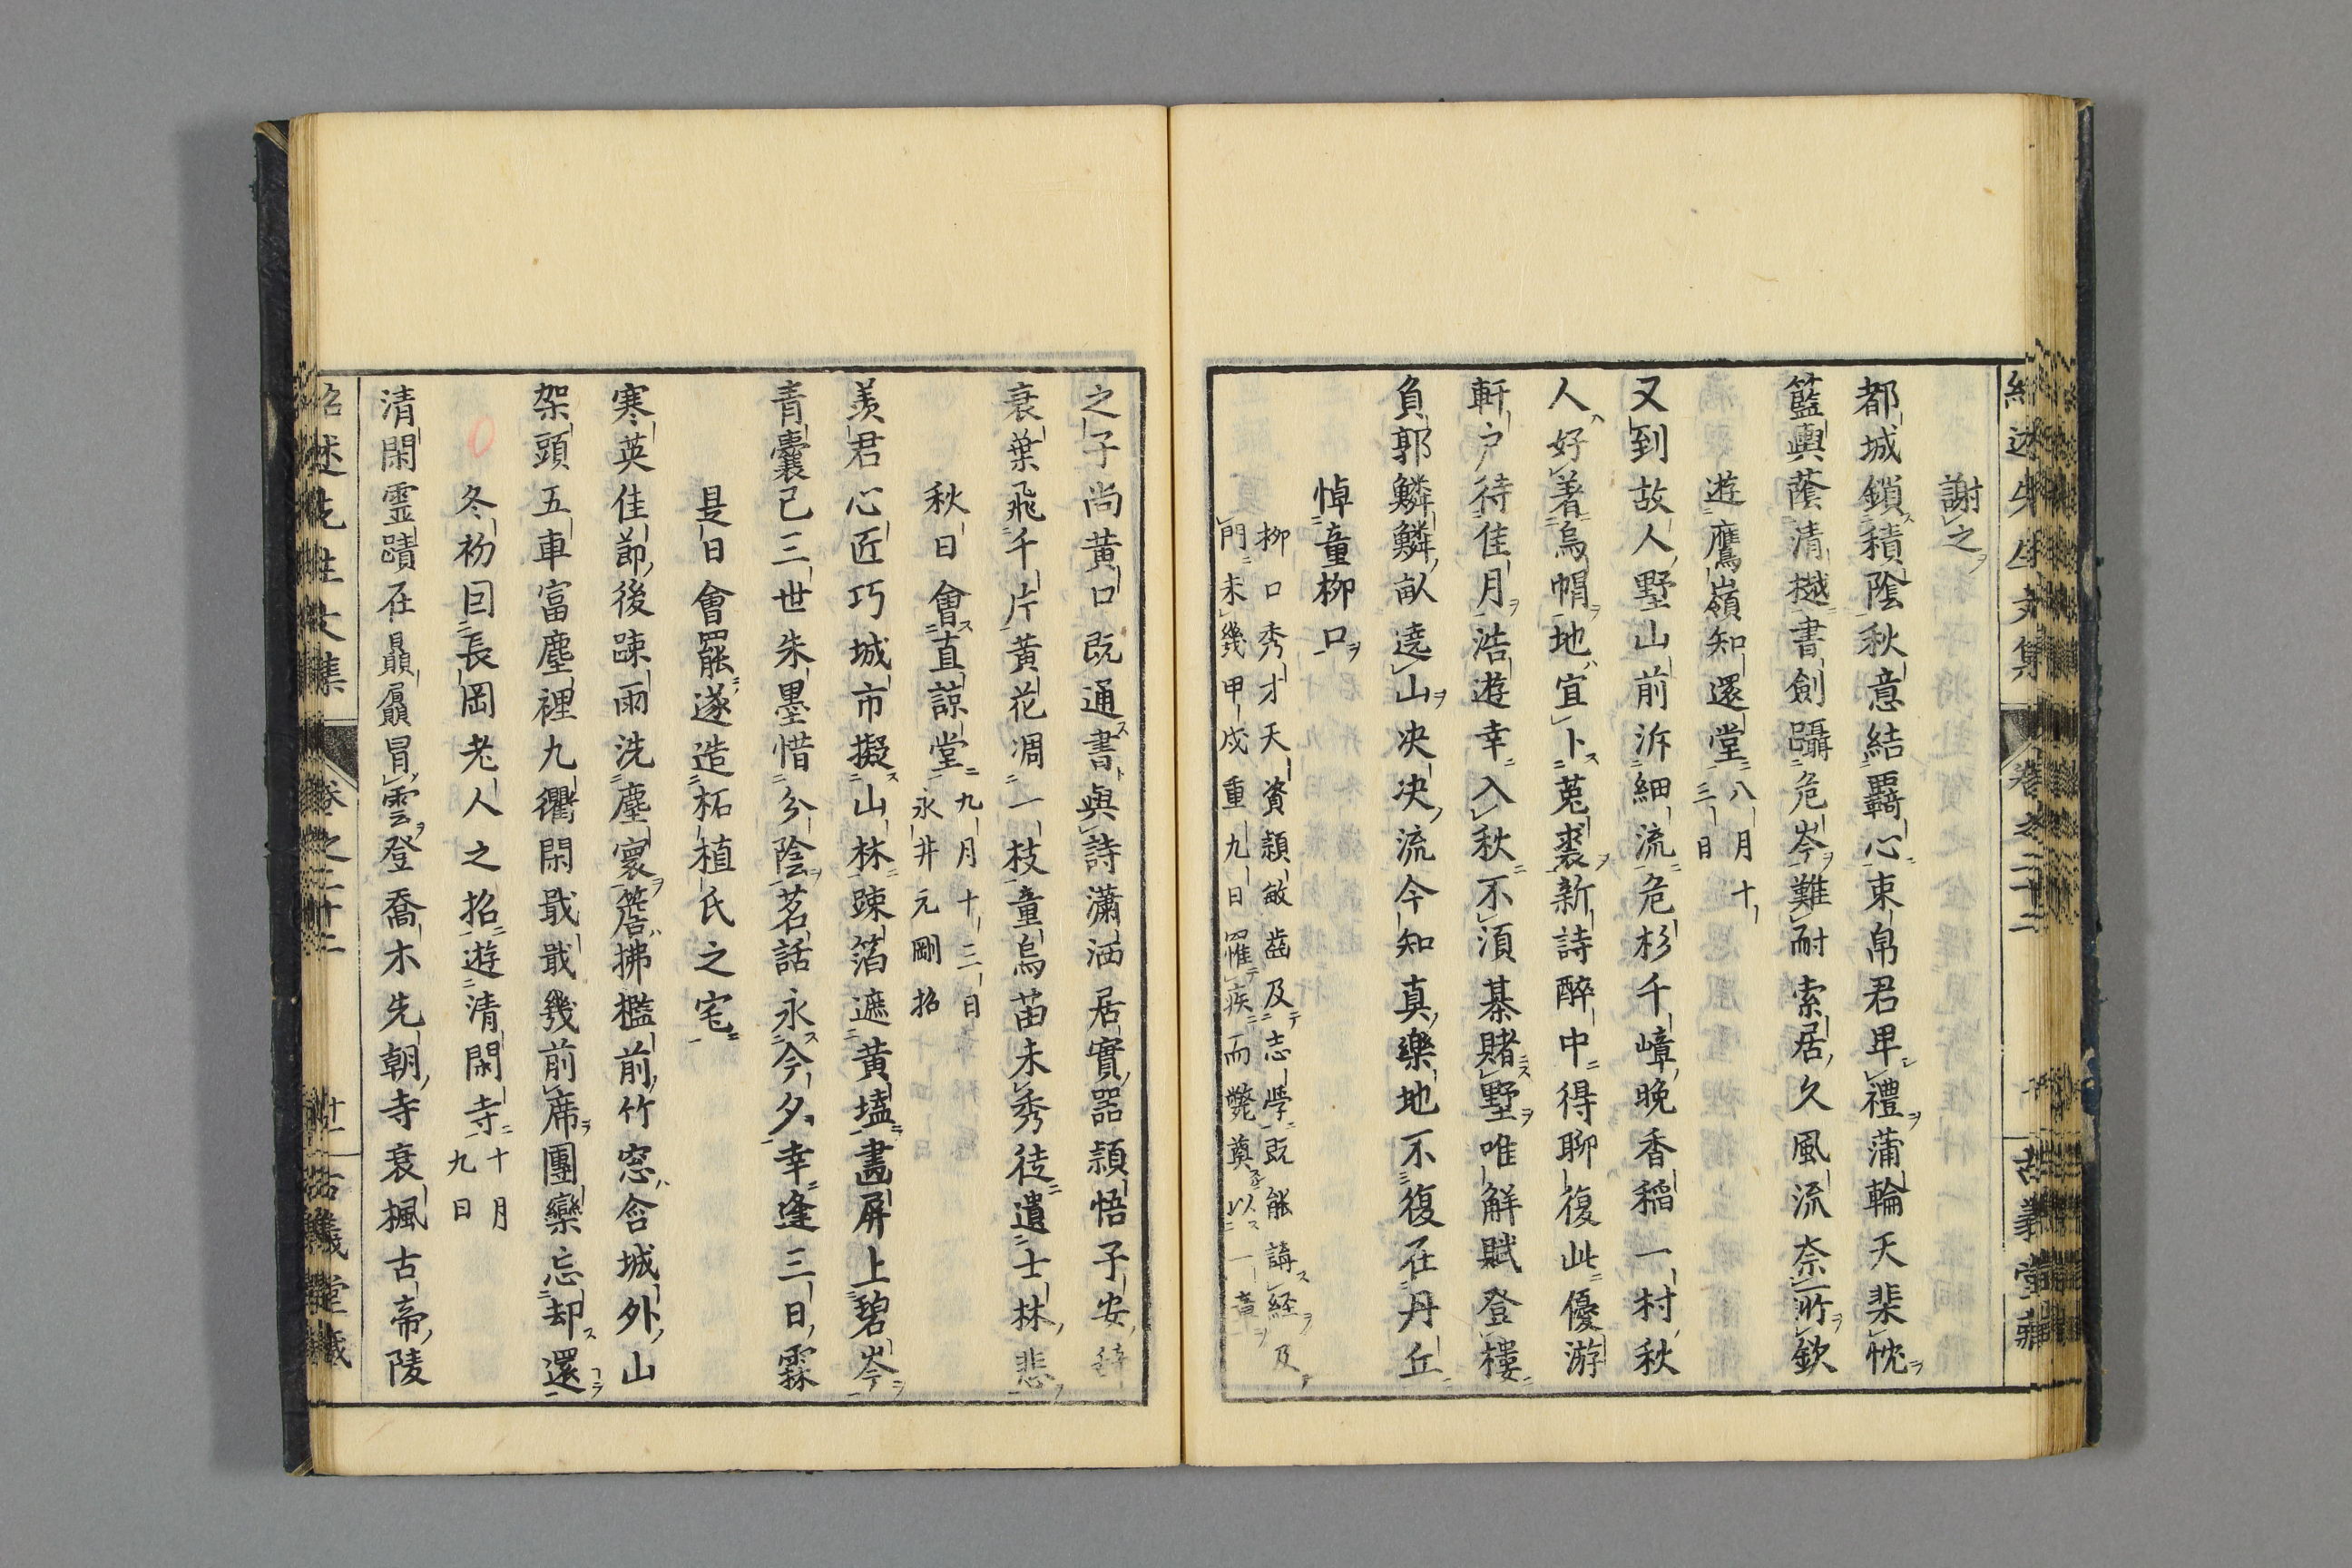 謝之
都城鎖積陰秋意結覊心束帛君卑禮蒲輪天棐忱
籃輿蔭清樾書劍躡危岑難耐索居久風流奈所欽
遊鷹嶺知還堂八月十
三日
又到故人墅山前泝細流危杉千嶂晚香稻一村秋
人好著烏帽地宜卜菟裘新詩醉中得聊復此優游
軒戶待佳月浩遊幸入秋不須棊賭墅唯解賦登樓
負郭鱗鱗畝遶山決決流今知真樂地不復在丹丘
悼童柳口
柳口秀才天資頴敏齒及志學既能講経及
門未幾甲戌重九日罹疾而斃奠以一章
之子尚黃口既通書與詩瀟洒居實器頴悟子安
衰葉飛千片黃花凋一枝童烏苗未秀徒遺士林悲
秋日會直諒堂九月十三日
永井元剛招
羨君心匠巧城市擬山林踈箔遮黃壒畵屏上碧岑
青囊已三世朱墨惜分陰茗話永今夕幸逢三日霖
是日會罷遂造柘植氏之宅
寒英佳節後踈雨洗塵寰簷拂檻前竹窓含城外山
架頭五車富塵裡九衢閑戢戢幾前席團欒忘却還
冬初因長岡老人之招遊清閑寺十月
九日
清閑靈蹟在贔屭冒雲登喬木先朝寺衰楓古帝陵
紹述先生文集 卷之二十二 十一 古義堂藏